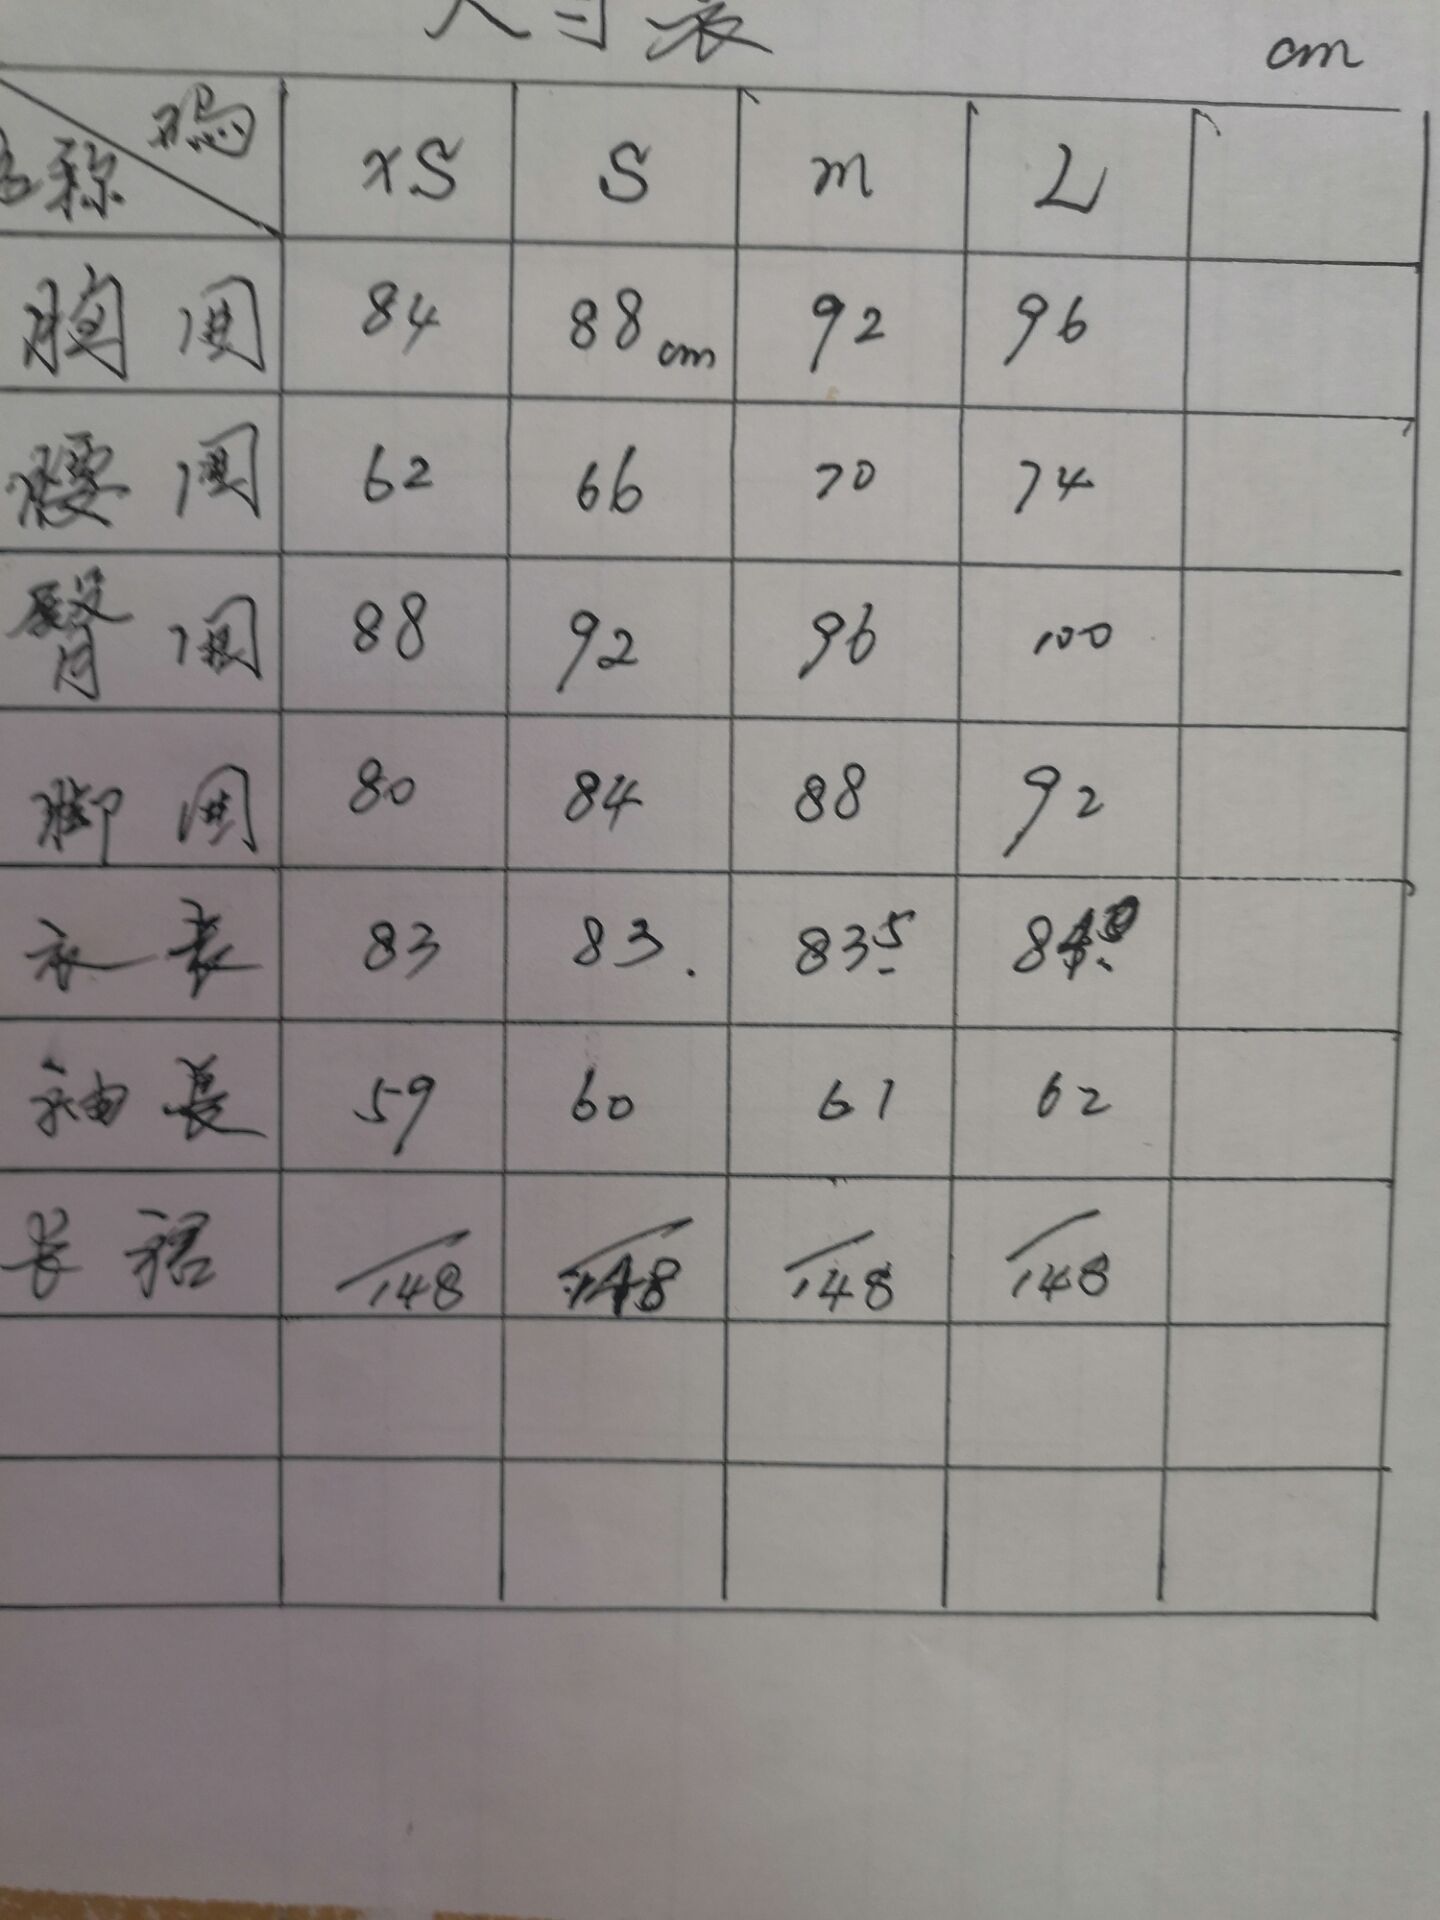 尺寸表 cm
码
名称 XS S m L
胸围 84 88cm 92 96
腰围 62 66 70 74
臀围 88 92 96 100
脚围 80 84 88 92
衣长 83 83. 83.5
袖長 59 60 61 62
长裙 148 148 148 148